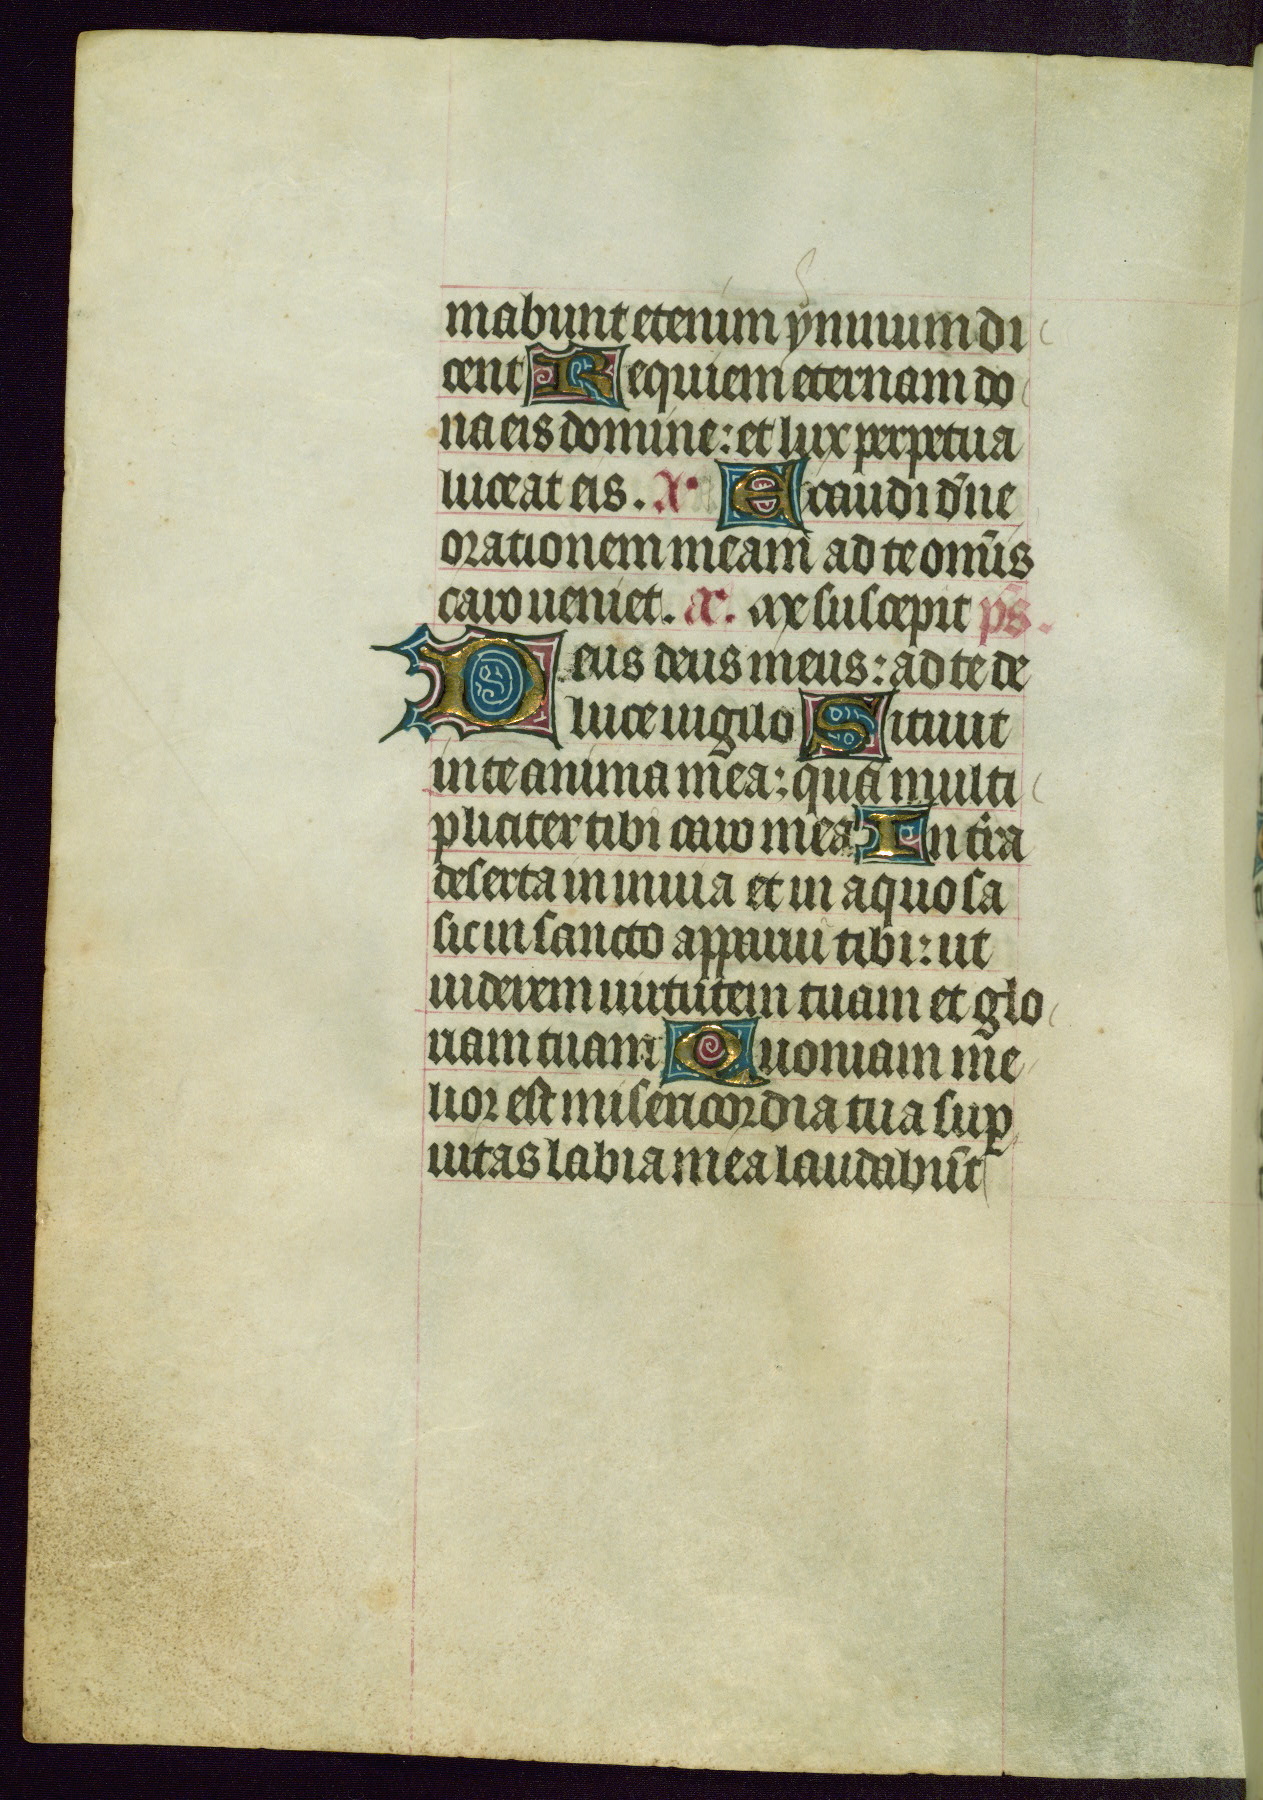 mabunt etenim ymnum di
cent Requiem eternam do
na eis domine: et lux perpetua
luceat eis. a. Exaudi dn̄e
orationem meam ad te omīs
caro ueniet. a. Me suscepit ps̄.
Deus deus meus: ad te de
luce uigilo Sitiuit
in te anima mea: quā multi
pliciter tibi caro mea In tr̄ra
deserta in inuia et in aquosa
sic in sancto apparui tibi: ut
uiderem uirtutem tuam et glo
riam tuam Quoniam me
lior est misericordia tua sup̱
uitas labia mea laudabūt